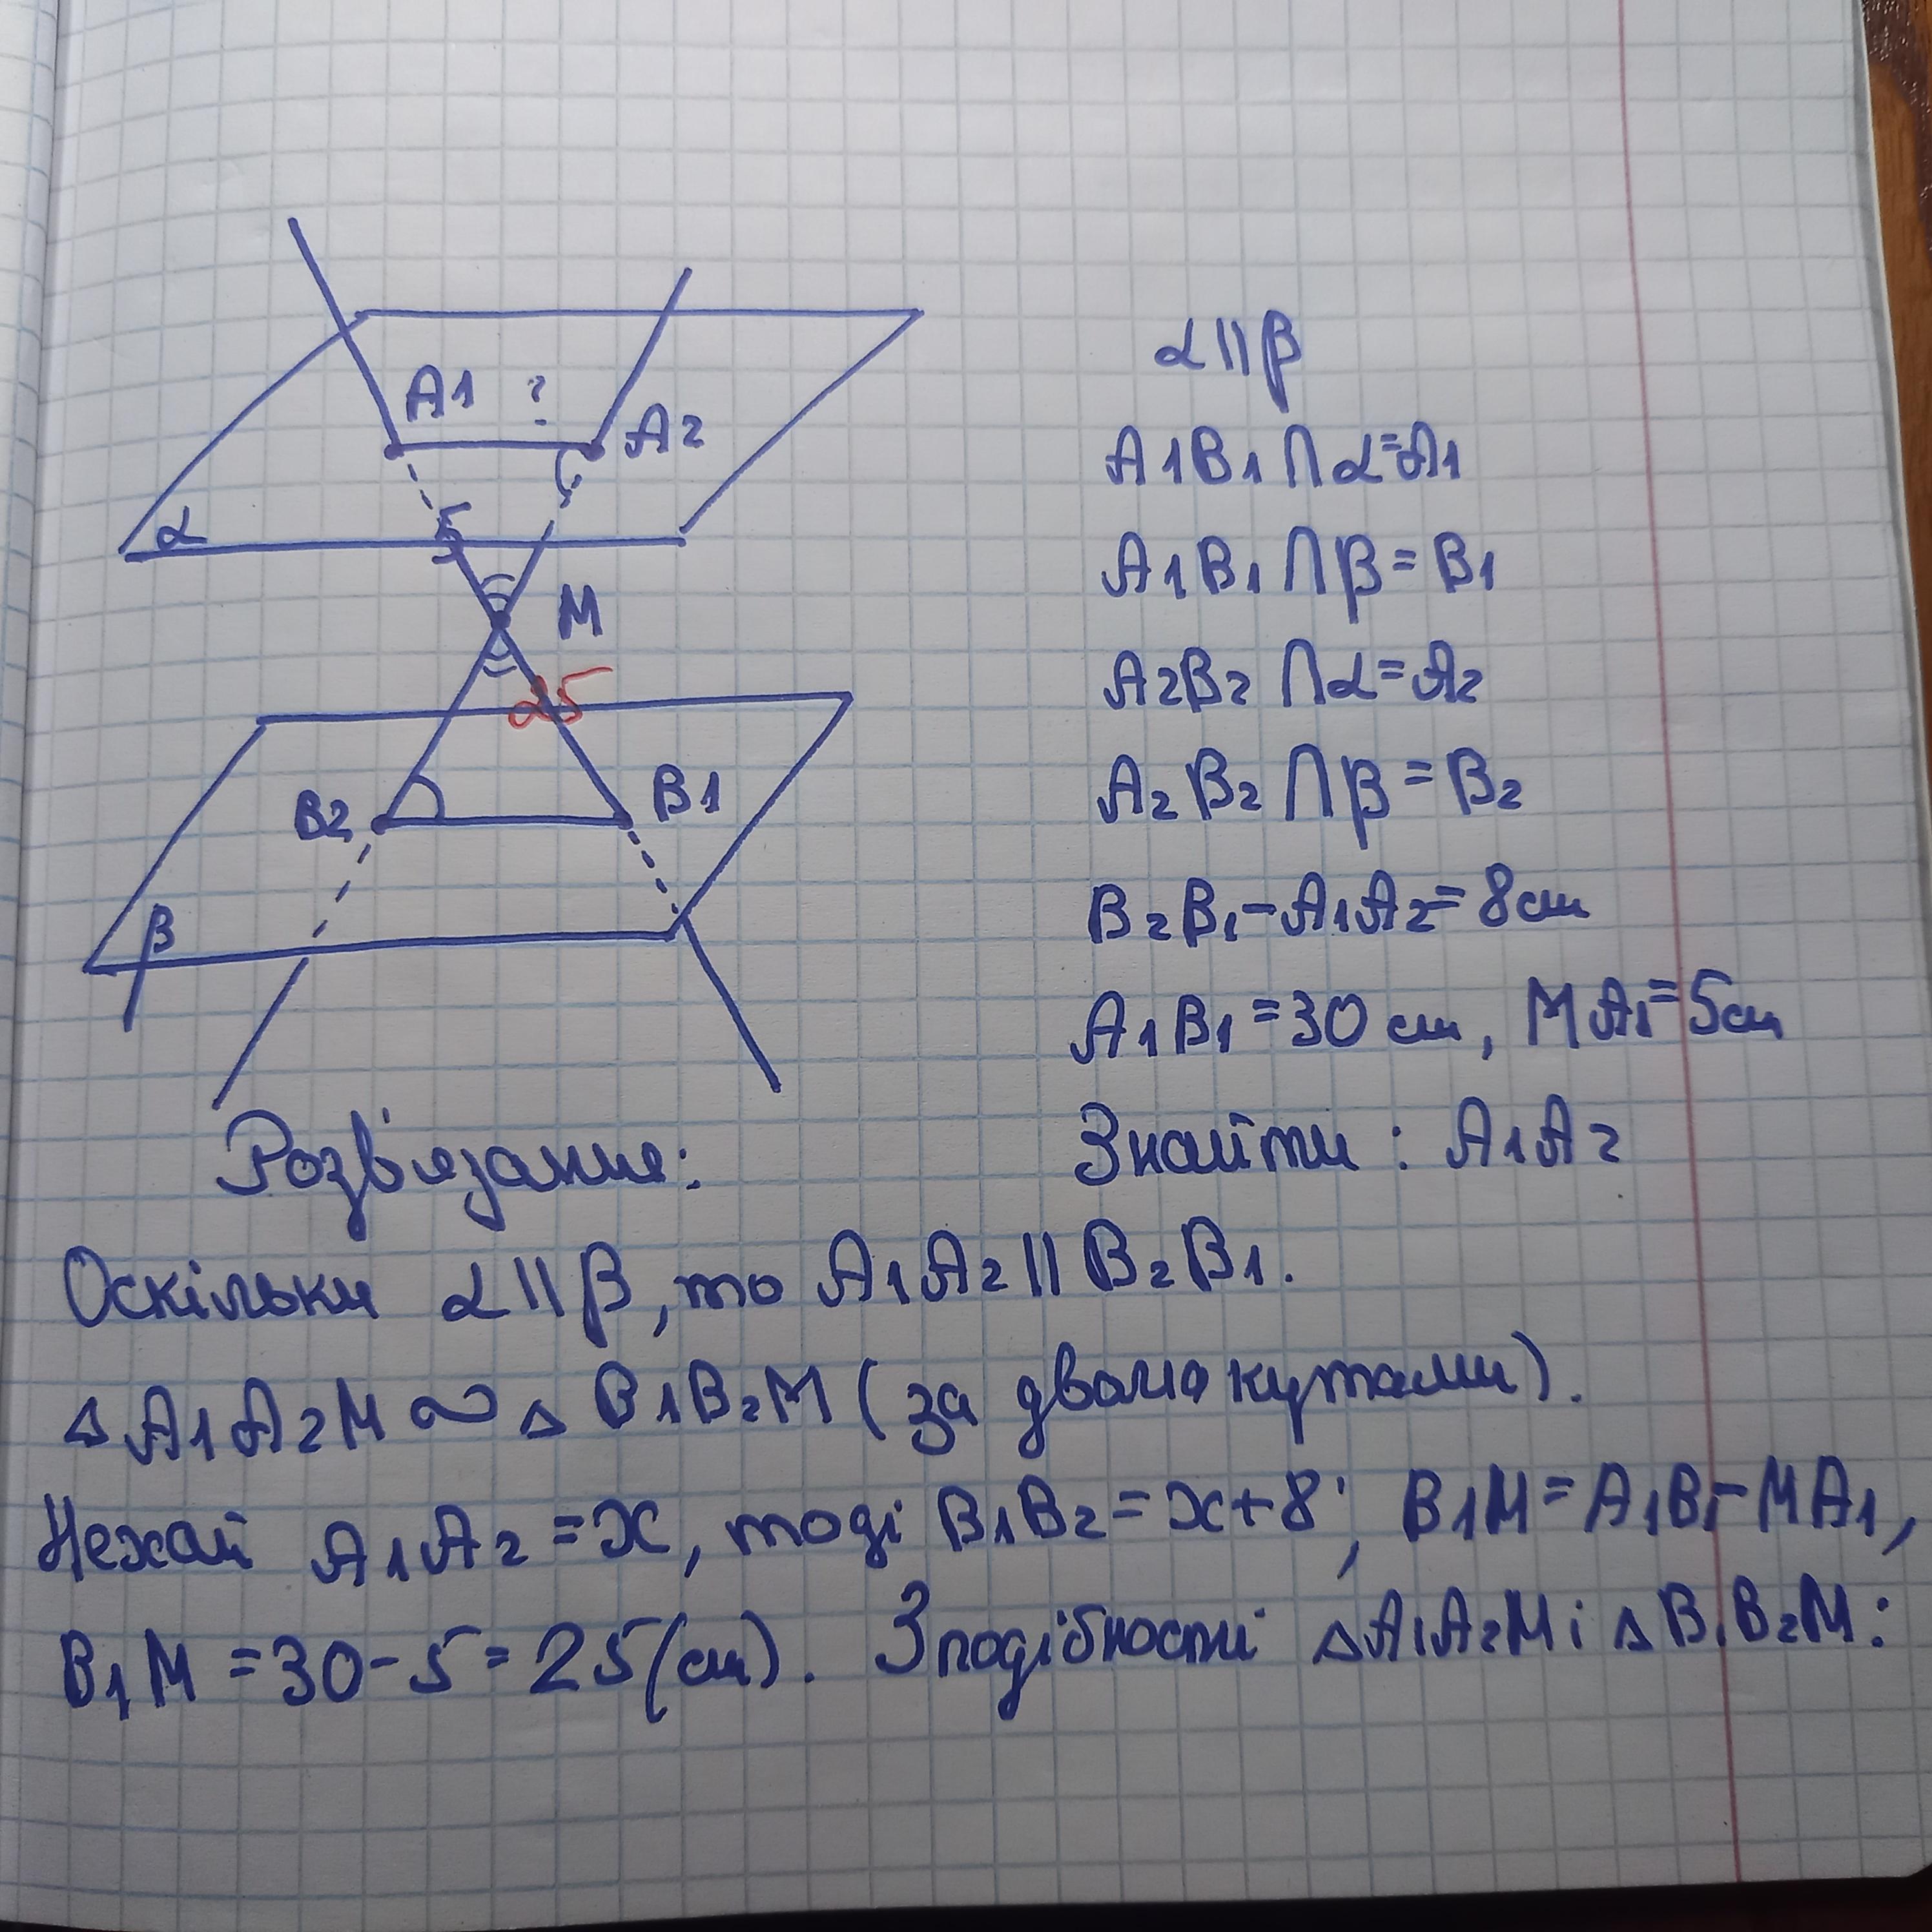 A1 ? A2
α
5
M
25
B2 B1
β
α || β
A1B1 ∩ α = A1
A1B1 ∩ β = B1
A2B2 ∩ α = A2
A2B2 ∩ β = B2
B2B1 - A1A2 = 8см
A1B1 = 30 см, MA1 = 5см
Знайти: A1A2
Розв'язання:
Оскільки α || β, то A1A2 || B2B1.
△ A1A2M ∾ △ B1B2M (за двома кутами).
Нехай A1A2 = x, тоді B1B2 = x+8; B1M = A1B1 - MA1,
B1M = 30 - 5 = 25 (см). З подібності △A1A2M і △ B1B2M: